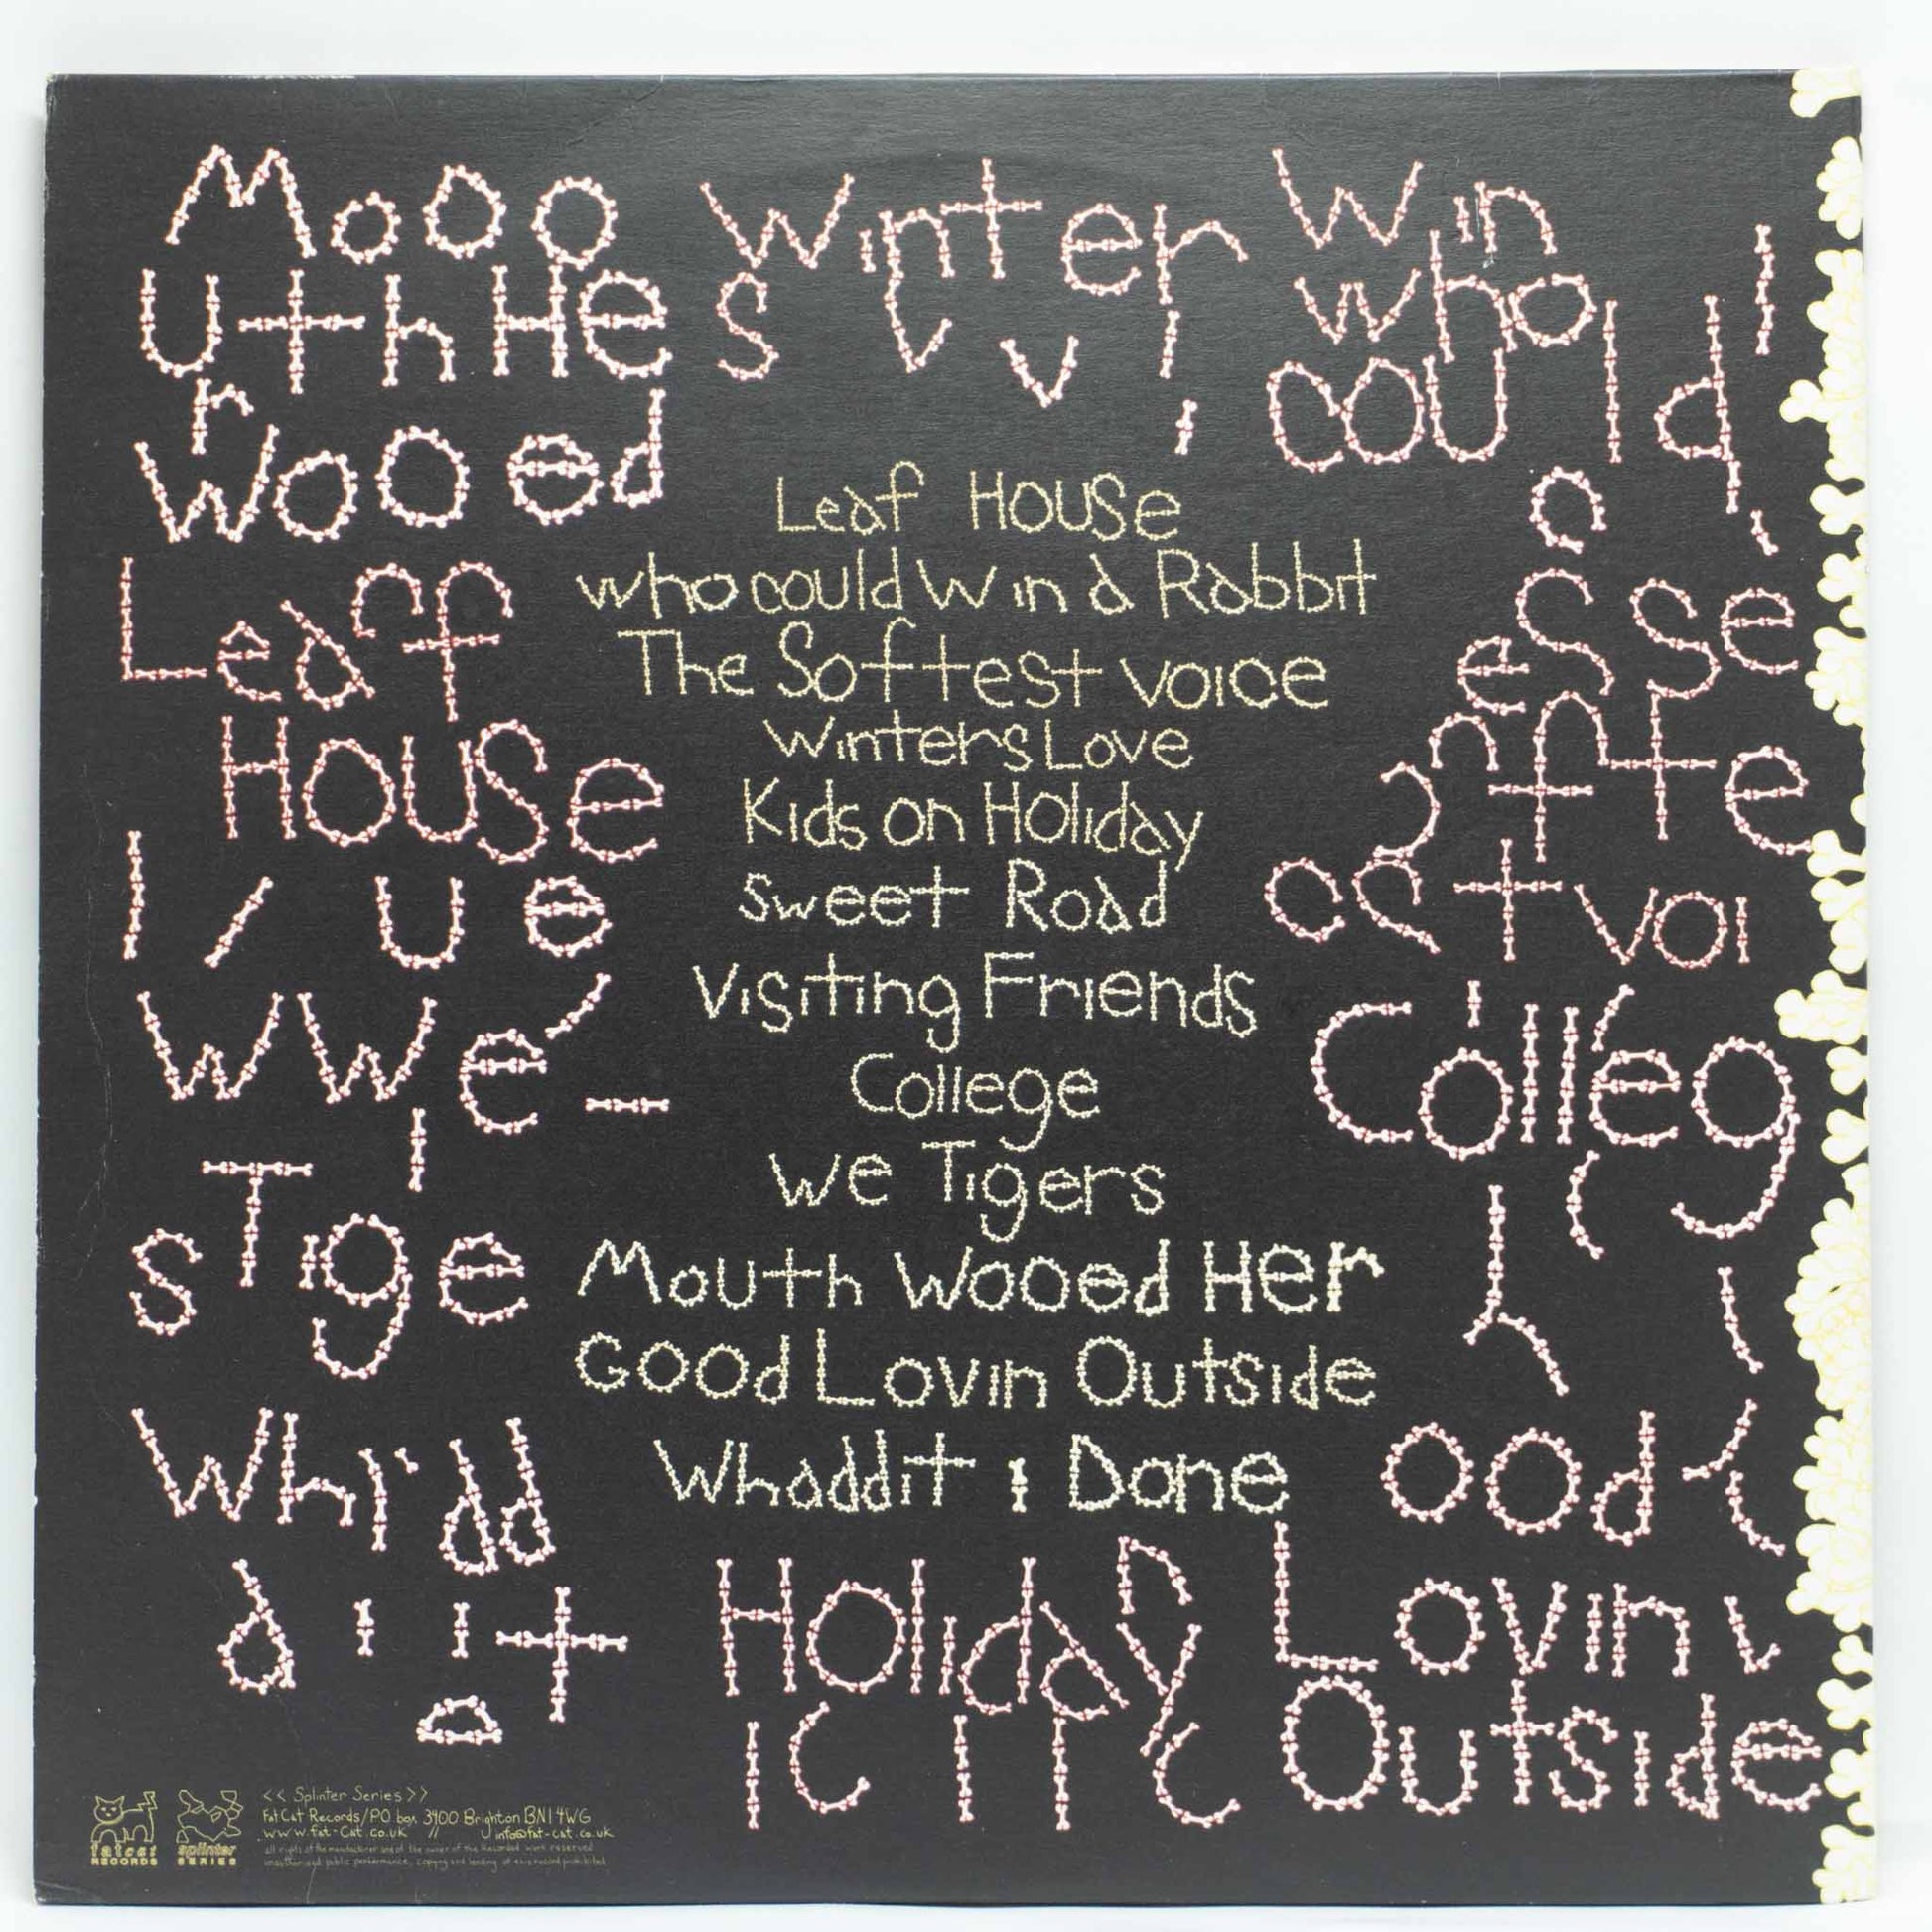 Mooo
UthHe
r
wooed
Winter
s
Win
who
could
Leaf House
who could Win a Rabbit
The Softest voice
Winters Love
Kids on Holiday
Sweet Road
Visiting Friends
College
We Tigers
Mouth Wooed Her
Good Lovin Outside
Whaddit i Done
Leaf
House
ue
WWe
sTige
Whidd
a i it
esse
ffte
tvoi
Colleg
ood
Holiday
Lovin
Outside
<< Splinter Series >>
FatCat Records/PO box 3400 Brighton BN1 4WG
www.fat-cat.co.uk // info@fat-cat.co.uk
all rights of the manufacturer and of the owner of the Recorded work reserved
unauthorised public performance, copying and lending of this record prohibited
fatcat
RECORDS
splinter
SERIES